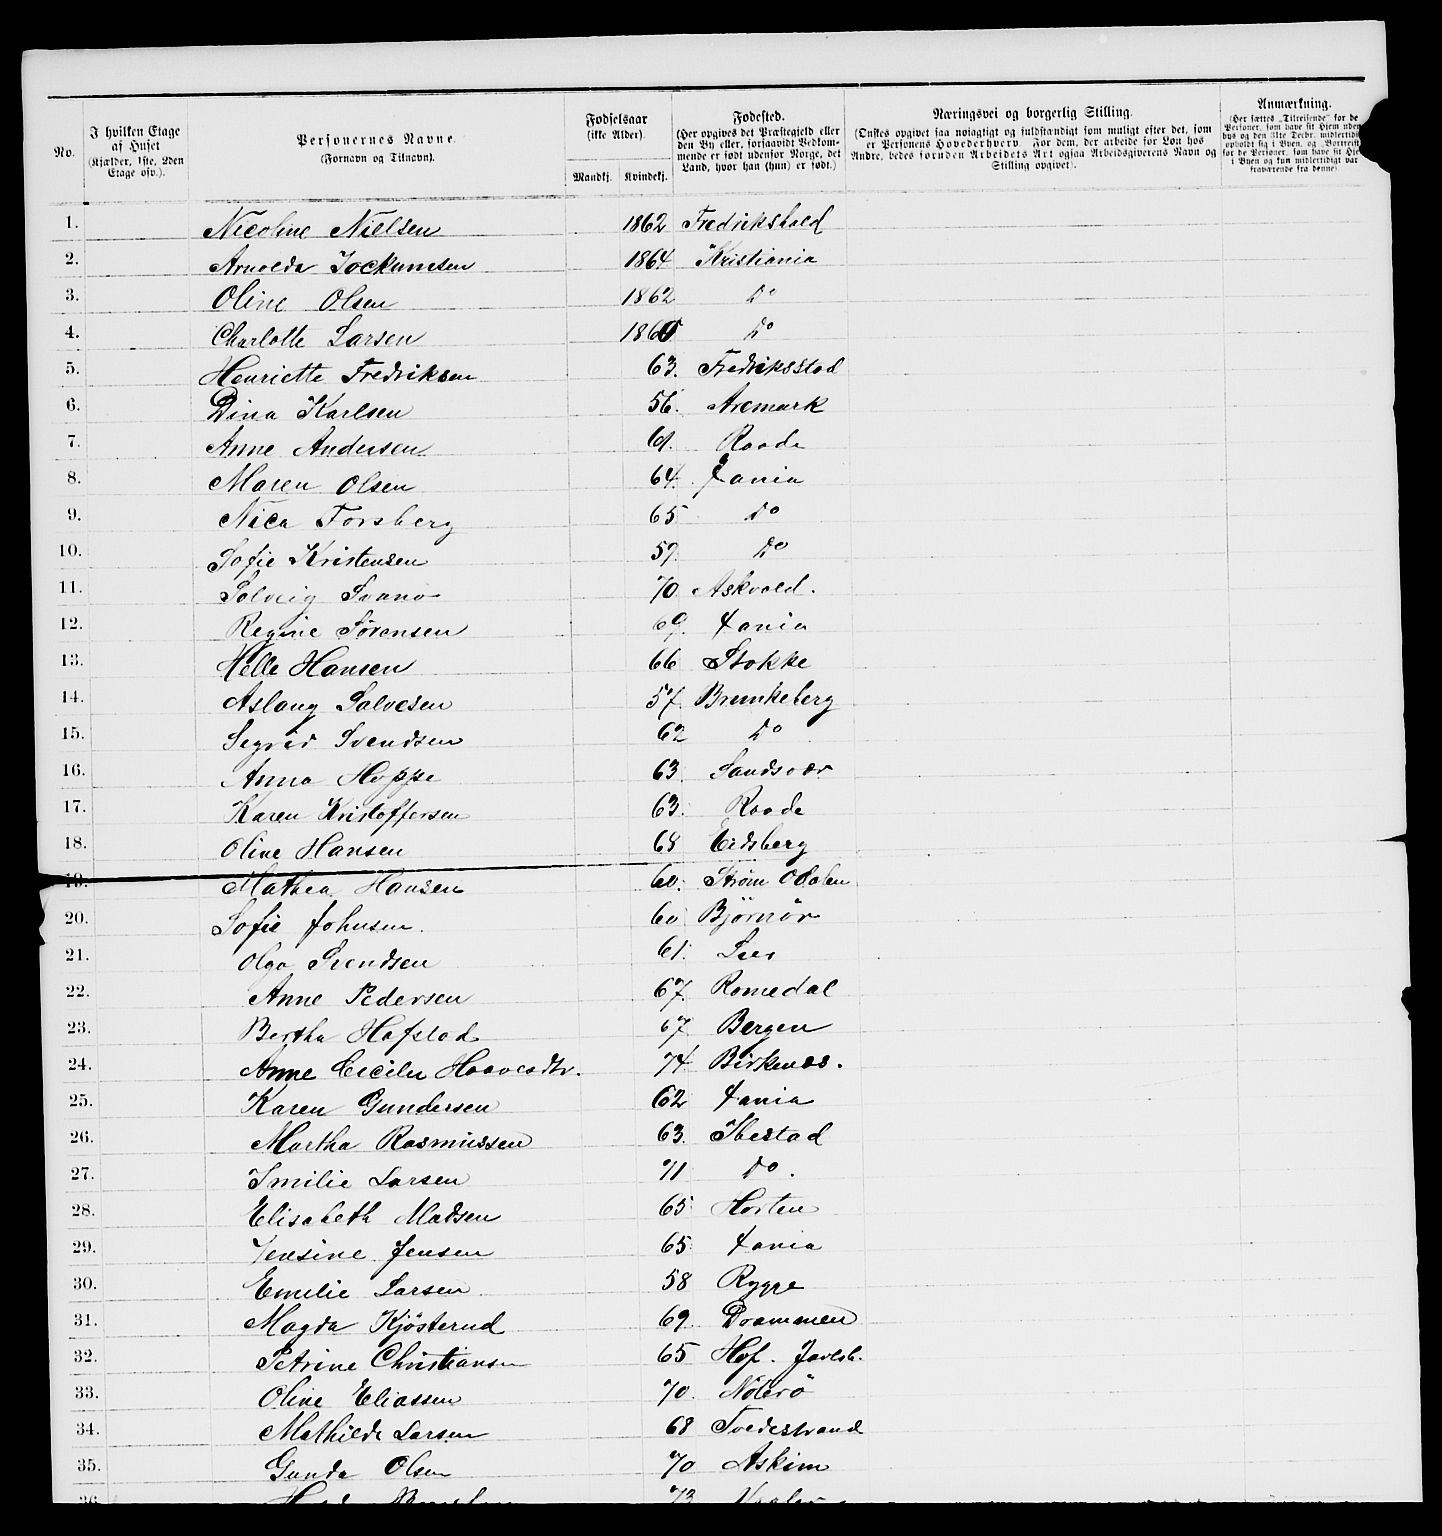 No.
I hvilken Etage af Huset (Kjælder, 1ste, 2den Etage osv.).
Personernes Navne. (Fornavn og Tilnavn).
Fødselsaar (ikke Alder). Mandkj. Kvindekj.
Fødested. (Her opgives det Præstegjeld eller den By eller, forsaavidt Vedkommende er født udenfor Norge, det Land, hvor han (hun) er født.)
Næringsvei og borgerlig Stilling. (Ønskes opgivet saa nøiagtigt og fuldstændigt som muligt efter det, som er Personens Hovederhverv. For dem, der arbeide for Løn hos Andre, bedes foruden Arbeidets Art ogsaa Arbeidsgiverens Navn og Stilling opgivet).
Anmærkning. (Her sættes „Tilreisende" for de Personer, som have sit Hjem udenbys og den 31te Decbr. midlertidigt opholdt sig i Byen, og „Bortreist" for de Personer, som have sit Hjem i Byen og kun midlertidigt var fraværende fra denne)
1. Nicoline Nielsen 1862 Fredrikshald
2. Arnolda Jockumsen 1864 Kristiania
3. Oline Olsen 1862 Do
4. Charlotte Larsen Do
5. Henriette Fredriksen 63. Fredriksstad
6. Dina Karlsen 56. Aremark
7. Anne Andersen 61. Raade
8. Maren Olsen 64. Xania
9. Forsberg 65 Do
10. Sofie Kristensen 59. Do
11. Solveig Svanø 70. Askvold.
12. Regine Sørensen 69. Xania
13. Helle Hansen 66 Stokke
14. Aslaug Salvesen 57. Brunkeberg
15. Segrid Svendsen 62 Do
16. Anna Hoppe 63. Sandsvær
17. Karen Kristoffersen 63. Raade
18. Oline Hansen 68 Eidsberg
19. Mathea Hansen 60. Strøm Odalen
20. Sofie Johnsen. 60 Bjørnør
21. Olga Svendsen 61.
22. Anne Pedersen 67. Romedal
23. Bertha Hafstad 67. Bergen
24. Anne Cecilie Haavesdtr. 74. Birkenæs.
25. Karen Gundersen 62 Xania
26. Martha Rasmussen 63. Ibestad
27. Emilie Larsen 71 Do.
28. Elisabeth Madsen 65. Horten
29. Jensine Jensen 65. Xania
30. Emilie Larsen 58 Rygge
31. Magda Kjøsterud 69. Drammen
32. Petrine Christiansen 65 Hof. Jarlsb.
33. Oline Eliassen 70. Nøterø
34. Mathilde Larsen 68 Tvedestrand
35. Gunda Olsen 70 Askim
36. 73